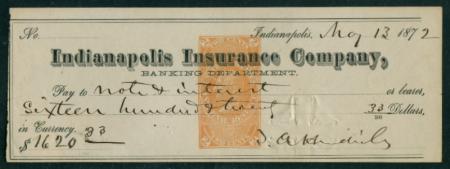 No. Indianapolis, May 13 1872
Indianapolis Insurance Company,
BANKING DEPARTMENT.
Pay to note & interest or bearer,
Sixteen hundred & twenty 33 Dollars,
in Currency.
$1620 33